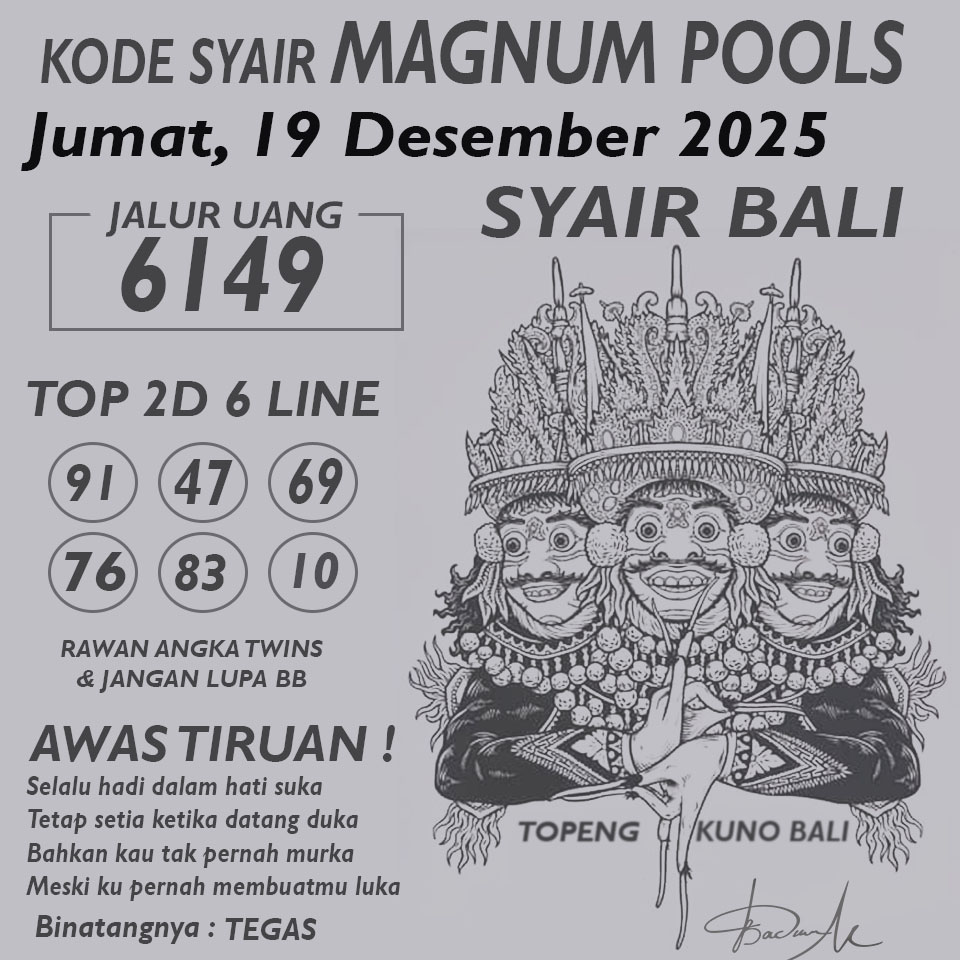 KODE SYAIR MAGNUM POOLS
Jumat, 19 Desember 2025
SYAIR BALI
JALUR UANG
6149
TOP 2D 6 LINE
91 47 69
76 83 10
RAWAN ANGKA TWINS
& JANGAN LUPA BB
AWAS TIRUAN !
Selalu hadi dalam hati suka
Tetap setia ketika datang duka
Bahkan kau tak pernah murka
Meski ku pernah membuatmu luka
Binatangnya : TEGAS
TOPENG KUNO BALI